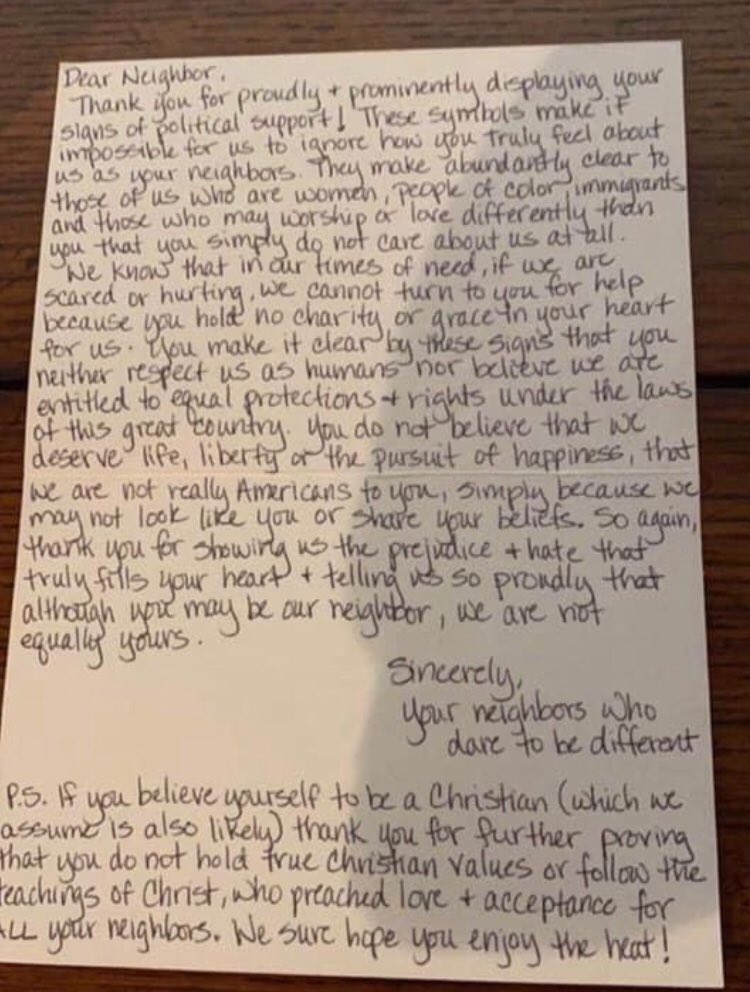 Dear Neighbor,
Thank you for proudly + prominently displaying your
signs of political support! These symbols make it
impossible for us to ignore how you truly feel about
us as your neighbors. They make abundantly clear to
those of us who are women, people of color, immigrants
and those who may worship or love differently than
you that you simply do not care about us at all.
We know that in our times of need, if we are
scared or hurting, we cannot turn to you for help
because you hold no charity or grace in your heart
for us. You make it clear by these signs that you
neither respect us as humans nor believe we are
entitled to equal protections + rights under the laws
of this great country. You do not believe that we
deserve life, liberty or the pursuit of happiness, that
we are not really Americans to you, simply because we
may not look like you or share your beliefs. So again,
thank you for showing us the prejudice + hate that
truly fills your heart + telling us so proudly that
although you may be our neighbor, we are not
equally yours.
Sincerely,
Your neighbors who
dare to be different
P.S. If you believe yourself to be a Christian (which we
assume is also likely) thank you for further proving
that you do not hold true Christian values or follow the
teachings of Christ, who preached love + acceptance for
ALL your neighbors. We sure hope you enjoy the heat!